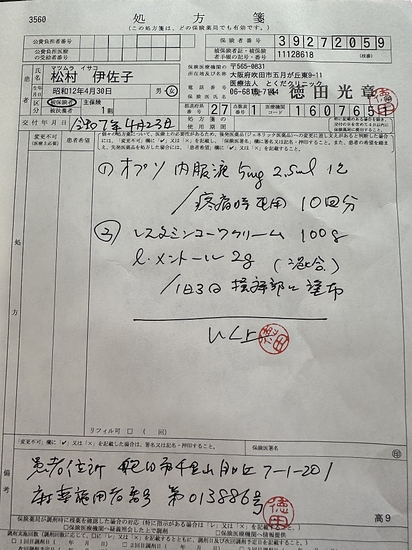 3560
処方箋
(この処方箋は、どの保険薬局でも有効です。)
公費負担者番号
保険者番号 39272059
公費負担医療の受給者番号
被保険者証・被保険者手帳の記号・番号 11128618 (枝番)
患者
氏名 マツムラ イサコ
松村 伊佐子
生年月日 昭和12年4月30日 男・女
区分 被保険者 主保険
被扶養者 1割
保険医療機関の所在地及び名称 〒565-0831
大阪府吹田市五月が丘東9-11
医療法人 とくだクリニック
電話番号 06-68
保険医氏名 徳田光章
都道府県番号 27 点数表番号 1 医療機関コード 160765
交付年月日 令和7年4月23日
処方箋の使用期間
変更不可
患者希望
処方
① オプソ内服液 5mg 2.5ml 1包
/疼痛時屯用 10回分
② レスタミンコーワクリーム 100g
l-メントール 2g (混合)
/1日3回 掻痒部に塗布
以上
リフィル可 □ ( 回)
保険医署名
「変更不可」欄に「✓」又は「×」を記載した場合は、署名又は記名・押印すること。
備考
患者住所 吹田市千里山月が丘 7-1-201
麻薬施用者番号 第013886号
徳田
高9
保険薬局が調剤時に残薬を確認した場合の対応(特に指示がある場合は「✓」又は「×」を記載すること。)